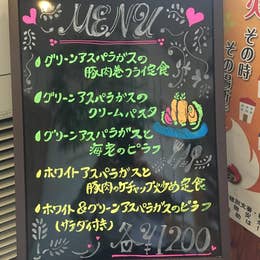 MENU
グリーンアスパラガスの
豚肉巻フライ定食
グリーンアスパラガスの
クリームパスタ
グリーンアスパラガスと
海老のピラフ
ホワイトアスパラガスと
豚肉のケチャップ炒め定食
ホワイト&グリーンアスパラガスのピラフ
(サラダ付き)
各¥1200
火
その時
その